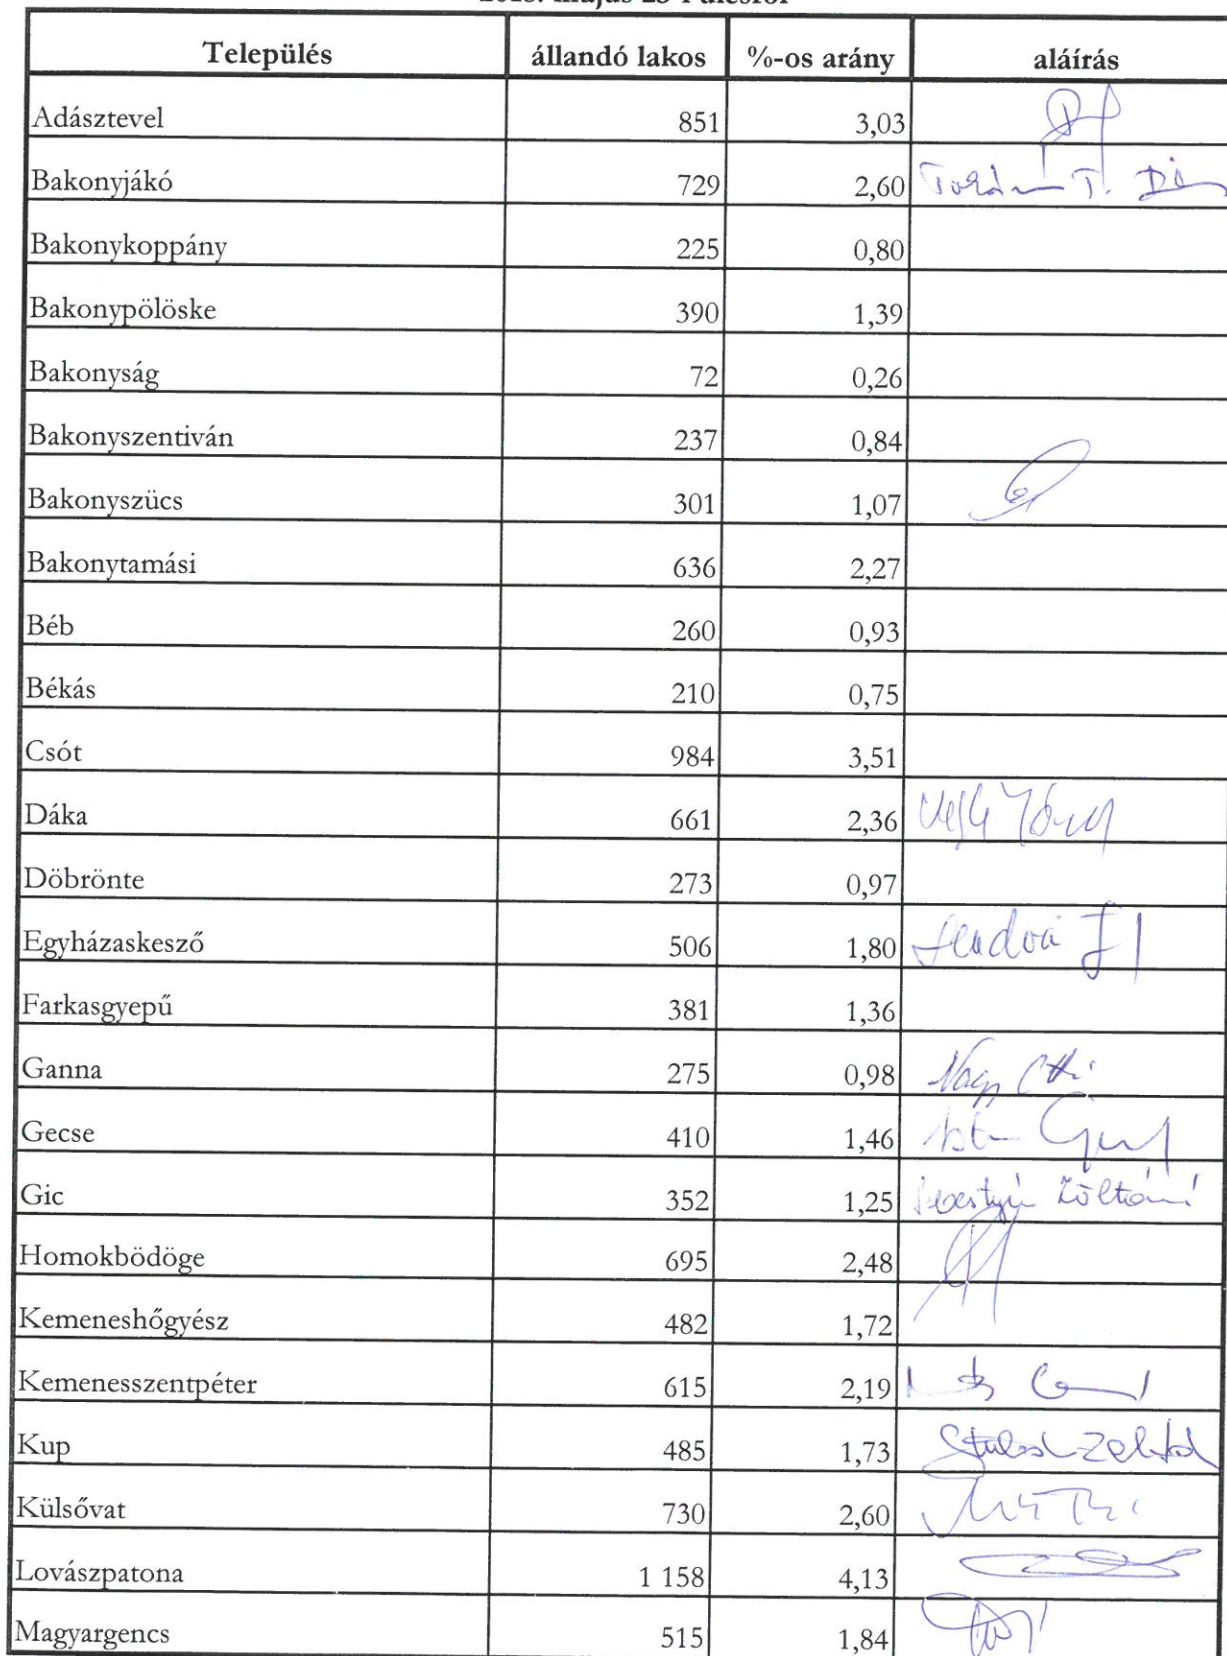 Település állandó lakos %-os arány aláírás
Adásztevel 851 3,03
Bakonyjákó 729 2,60
Bakonykoppány 225 0,80
Bakonypölöske 390 1,39
Bakonyság 72 0,26
Bakonyszentiván 237 0,84
Bakonyszücs 301 1,07
Bakonytamási 636 2,27
Béb 260 0,93
Békás 210 0,75
Csót 984 3,51
Dáka 661 2,36
Döbrönte 273 0,97
Egyházaskesző 506 1,80
Farkasgyepű 381 1,36
Ganna 275 0,98 Nagy
Gecse 410 1,46
Gic 352 1,25
Homokbödöge 695 2,48
Kemeneshőgyész 482 1,72
Kemenesszentpéter 615 2,19
Kup 485 1,73
Külsővat 730 2,60
Lovászpatona 1 158 4,13
Magyargencs 515 1,84